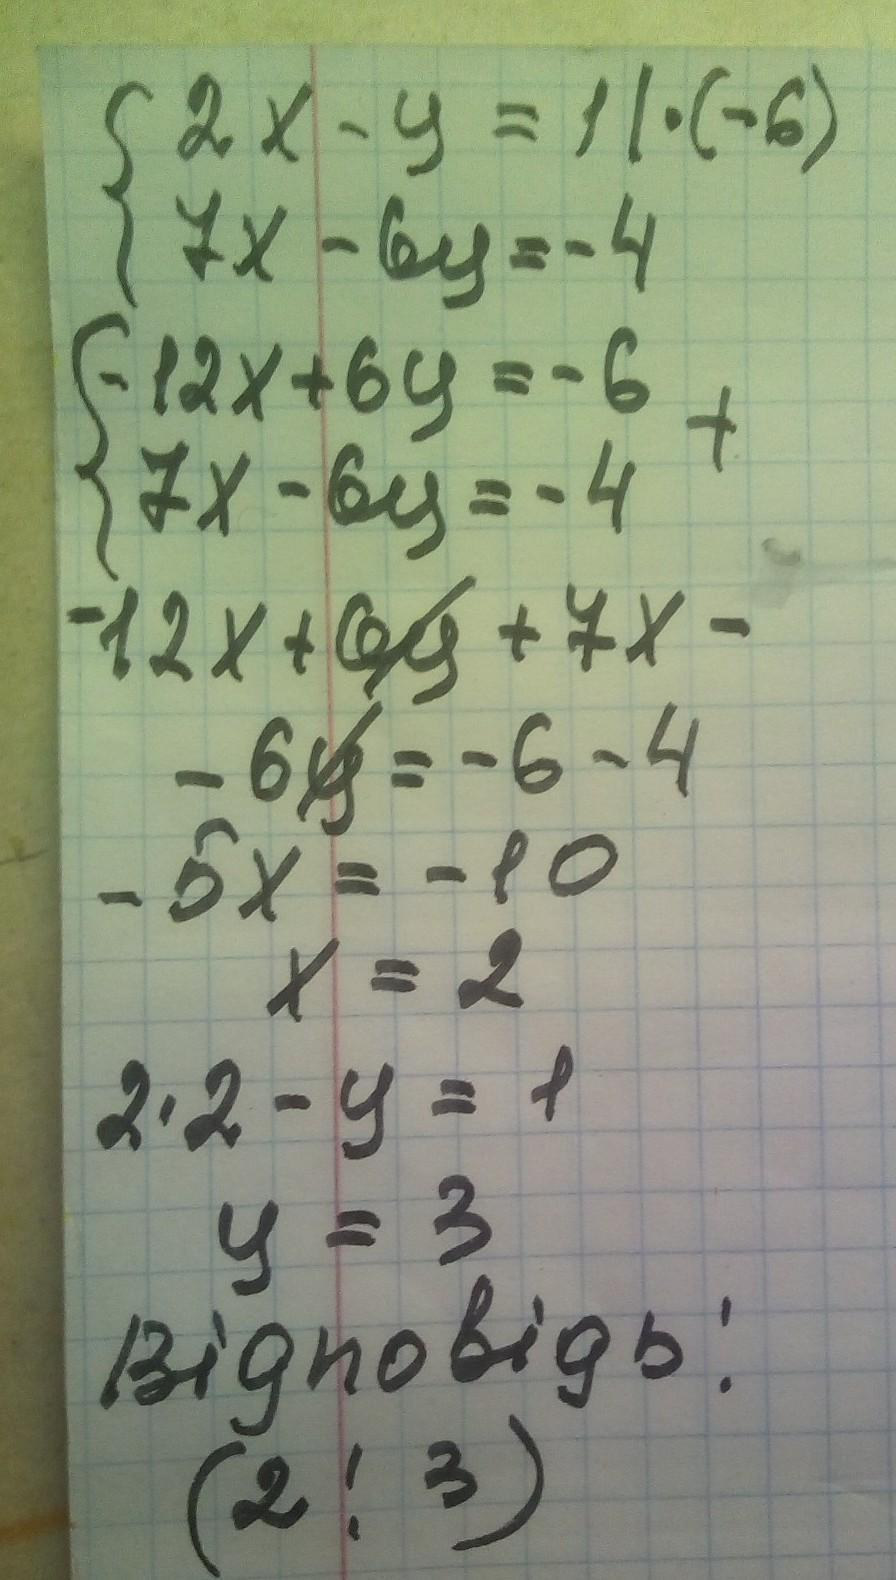 { 2x - y = 1 | · (-6)
7x - 6y = -4
{ -12x + 6y = -6
7x - 6y = -4 +
-12x + 6y + 7x -
- 6y = -6 - 4
-5x = -10
x = 2
2·2 - y = 1
y = 3
Відповідь:
(2; 3)